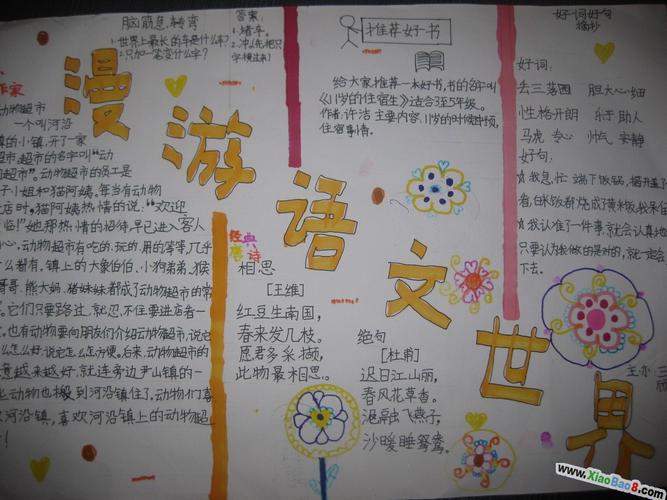 脑筋急转弯
1.世界上最长的车是什么车?
2.只加一笔变什么字?
答案:
1.堵车。
2.冲(先把只
字横过来)
推荐好书
给大家推荐一本好书,书的名叫
《11岁的住宿生》适合3至5年级。
作者:许洁 主要内容:11岁的时候申师,
住宿事情。
好词好句
摘抄
好词:
丢三落四 胆大心细
性格开朗 乐于助人
马虎 专心 帅气 安静
好句:
☆我急忙 端下饭锅,揭开盖了
者,白米饭都烧成了黄米饭,我呆住
☆我认准了一件事,就会认真地
只要认为我做的是对的,就一定会
下去。
漫游语文世界
作家
动物超市
一个叫河沿
镇的小镇,开了一家
超市,超市的名字叫“动
物超市”。动物超市的员工是
子小姐和猫阿姨。每当有动物
店时,猫阿姨热情的说:“欢迎
临!”她那热情的招待,早已进入客人
心。动物超市有吃的、玩的、用的等等,几乎
么都有,镇上的大象伯伯、小狗弟弟、猴
哥哥、熊大妈、猪妹妹都成了动物超市的常
。它们只要路过,就忍不住要进店看一
。也有动物要向朋友们介绍动物超市,说它
么怎么好,说它怎么怎么方便。后来,动物超市的
意越来越好,就连旁边尹山镇的一
些动物也搬到河沿镇住了。动物们喜
欢河沿镇,喜欢河沿镇上的动物超
!
经典
唐诗
相思
[王维]
红豆生南国,
春来发几枝。
愿君多采撷,
此物最相思。
绝句
[杜甫]
迟日江山丽,
春风花草香。
泥融飞燕子,
沙暖睡鸳鸯。
www.XiaoBao8.com